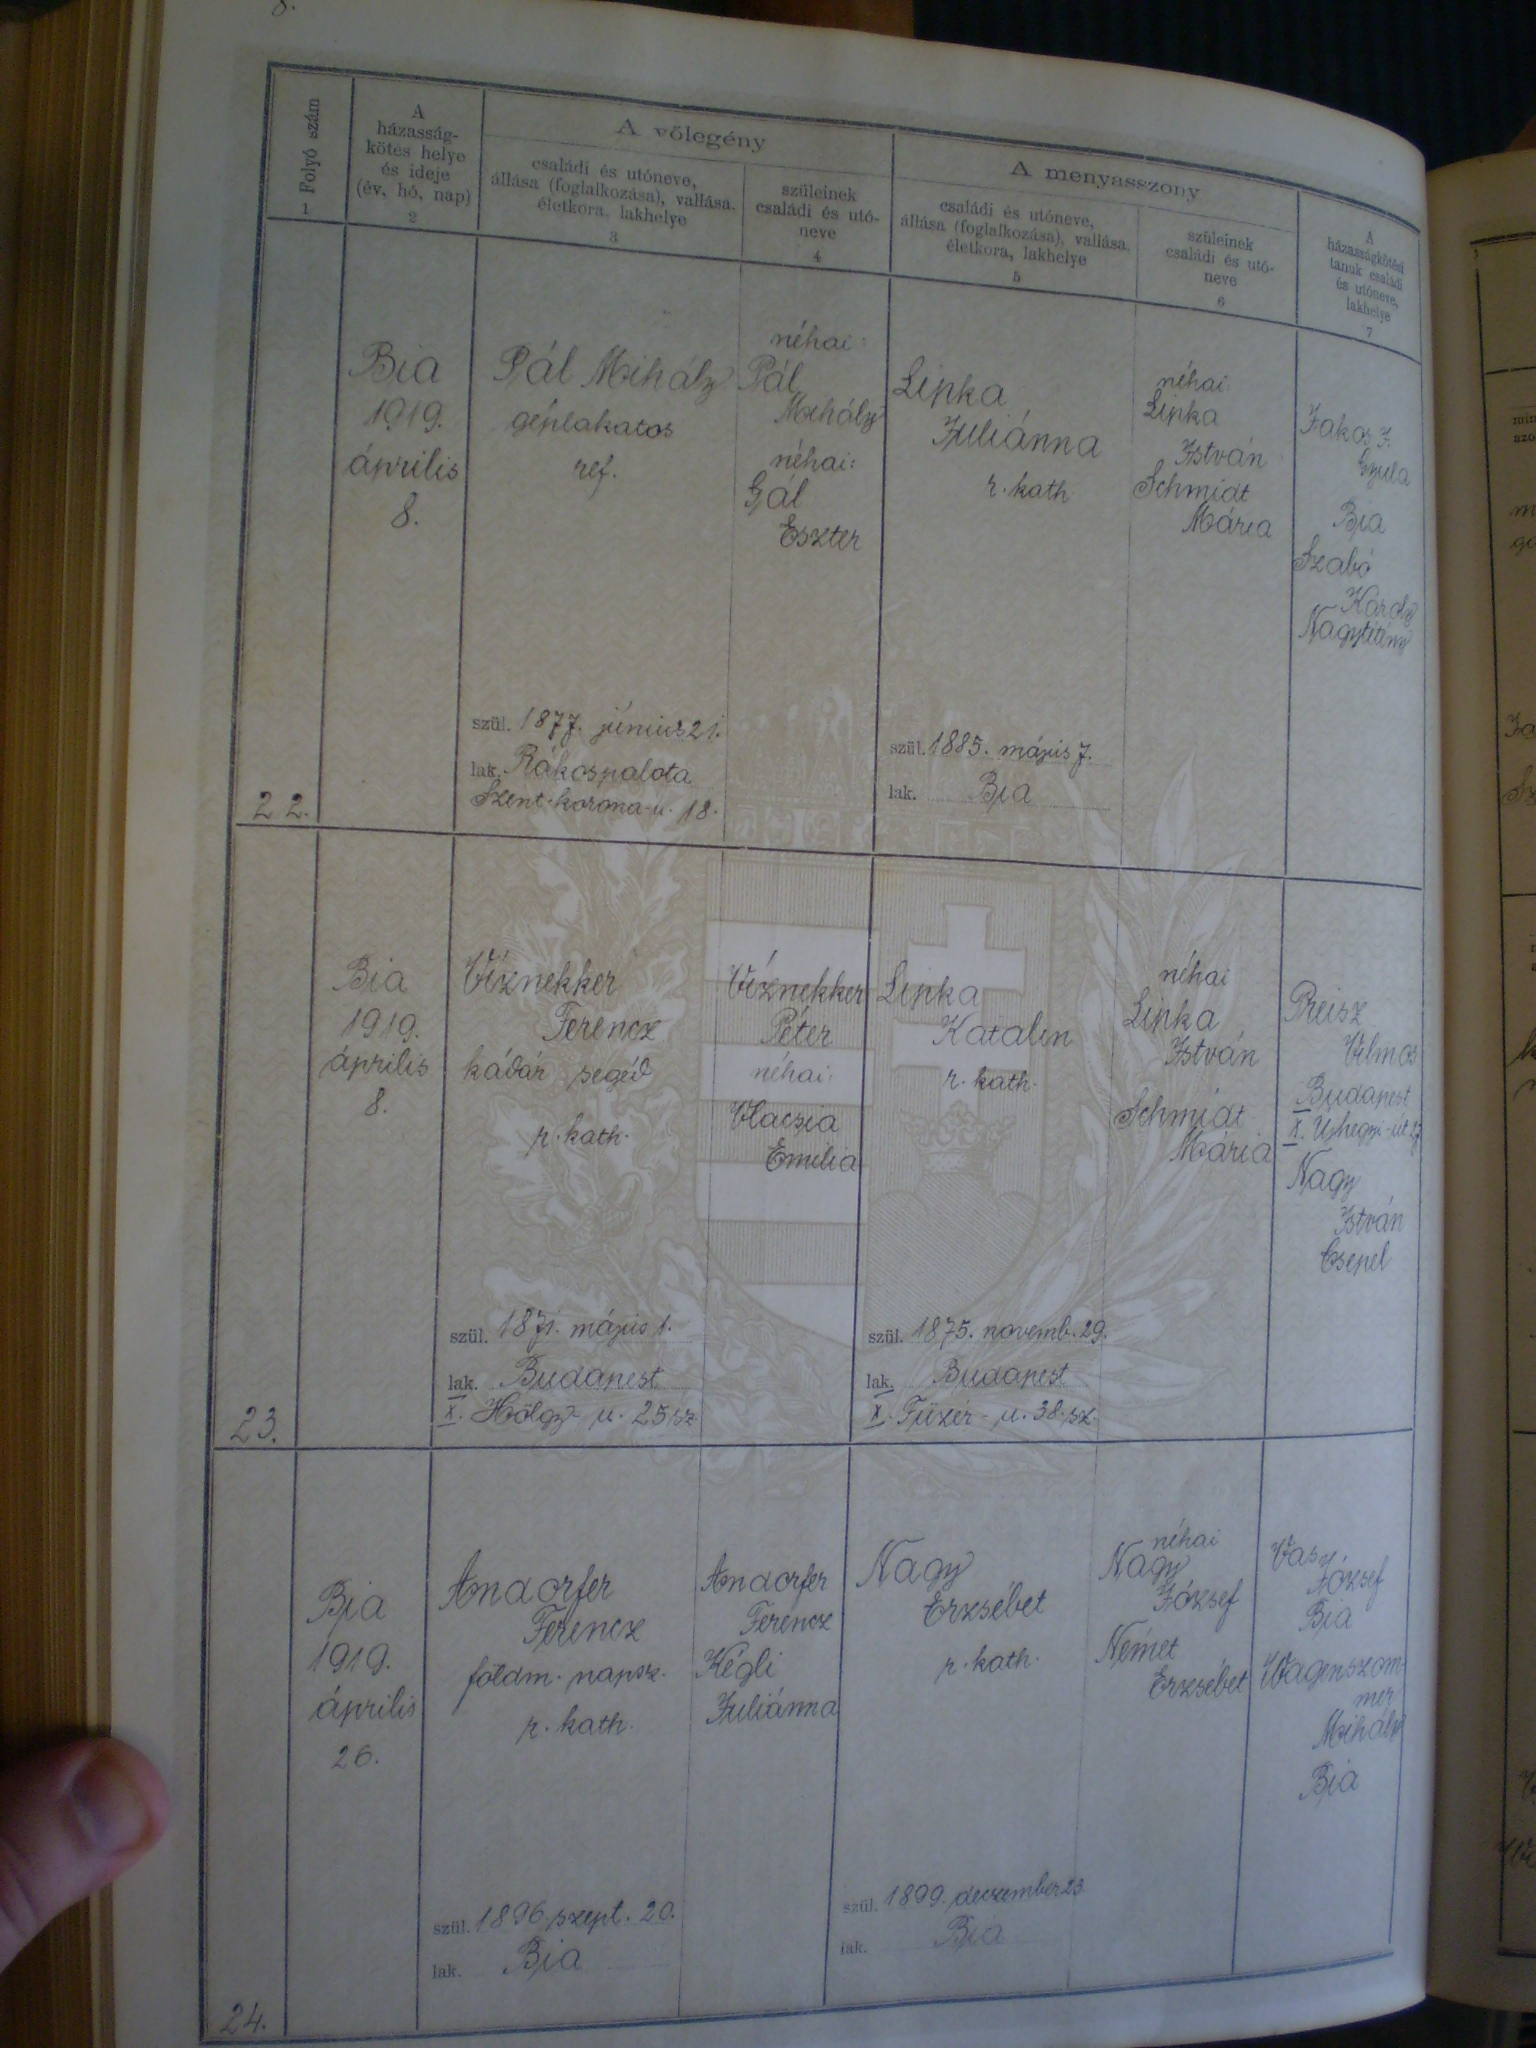 8.
Folyó szám
1
A
házasság-
kötés helye
és ideje
(év, hó, nap)
2
A vőlegény
családi és utóneve,
állása (foglalkozása), vallása,
életkora, lakhelye
3
szüleinek
családi és utó-
neve
4
A menyasszony
családi és utóneve,
állása (foglalkozása), vallása,
életkora, lakhelye
5
szüleinek
családi és utó-
neve
6
A
házasságkötési
tanuk családi
és utóneve,
lakhelye
7
22.
Bia
1919.
április
8.
Pál Mihály
géplakatos
ref.
szül. 1877. június 21.
lak. Rákospalota
Szent-korona-u. 18.
néhai:
Pál
Mihály
néhai:
Gál
Eszter
Lipka
Juliánna
r. kath
szül. 1885. május 7.
lak. Bia
néhai:
Lipka
István
Schmidt
Mária
Jakos J.
Gyula
Bia
Szabó
Károly
Nagytétény
23.
Bia
1919.
április
8.
Víznekker
Ferencz
kádár segéd
r. kath.
szül. 1871. május 1.
lak. Budapest
X. Hölgy u. 25 sz.
Víznekker
Péter
néhai:
Vlacsia
Emilia
Lipka
Katalin
r. kath.
szül. 1875. novemb. 29.
lak. Budapest
X. Füzér-u. 38. sz.
néhai
Lipka
István
Schmidt
Mária
Preisz
Vilmos
Budapest
X. Ujhegyi-út 27
Nagy
István
Csepel
24.
Bia
1919.
április
26.
Andorfer
Ferencz
földm. napsz.
r. kath.
szül. 1896 szept. 20.
lak. Bia
Andorfer
Ferencz
Kégli
Juliánna
Nagy
Erzsébet
r. kath.
szül. 1899. deczember 23.
lak. Bia
néhai
Nagy
József
Német
Erzsébet
Vas
József
Bia
Wagenszom-
mer
Mihály
Bia